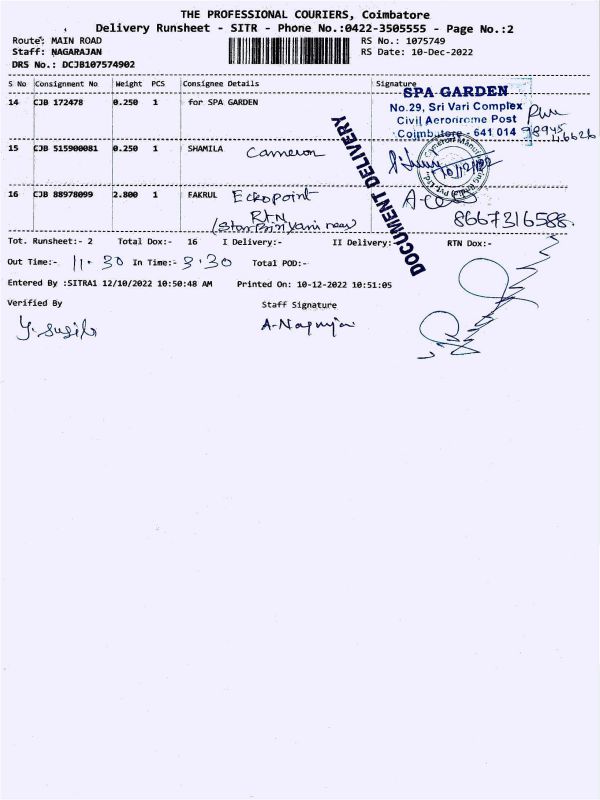 THE PROFESSIONAL COURIERS, Coimbatore
Delivery Runsheet - SITR - Phone No.:0422-3505555 - Page No.:2
Route: MAIN ROAD RS No.: 1075749
Staff: NAGARAJAN RS Date: 10-Dec-2022
DRS No.: DCJB107574902
S No Consignment No Weight PCS Consignee Details Signature
14 CJB 172478 0.250 1 for SPA GARDEN
SPA GARDEN
No.29, Sri Vari Complex
Civil Aerodrome Post
Coimbatore - 641 014
15 CJB 515900081 0.250 1 SHAMILA Cameron
10/12/22
16 CJB 88978099 2.800 1 FAKRUL Ecropoint
RTN
8667316588
DOCUMENT DELIVERY
Tot. Runsheet:- 2 Total Dox:- 16 I Delivery:- II Delivery:- RTN Dox:-
Out Time:- 11.30 In Time:- 3.30 Total POD:-
Entered By :SITRA1 12/10/2022 10:50:48 AM Printed On: 10-12-2022 10:51:05
Verified By Staff Signature